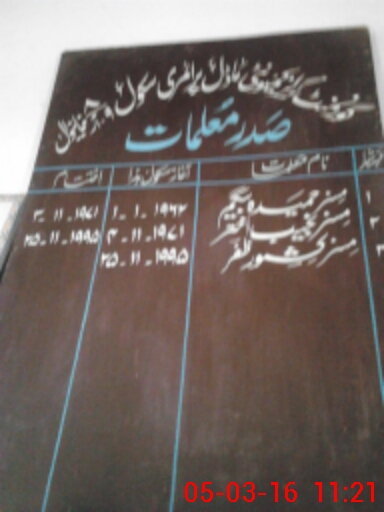 گورنمنٹ گرلز کمیونٹی ماڈل پرائمری سکول
صدر معلمات
نام معلمات آغاز سکول ہذا اختتام
۱ مسز حمیدہ بیگم ۱-۱-۱۹۶۲ ۳-۱۱-۱۹۷۱
۲ مسز نجیب النفر ۳-۱۱-۱۹۷۱ ۲۵-۱۱-۱۹۹۵
۳ مسز کشور ظفر ۲۵-۱۱-۱۹۹۵
05-03-16 11:21